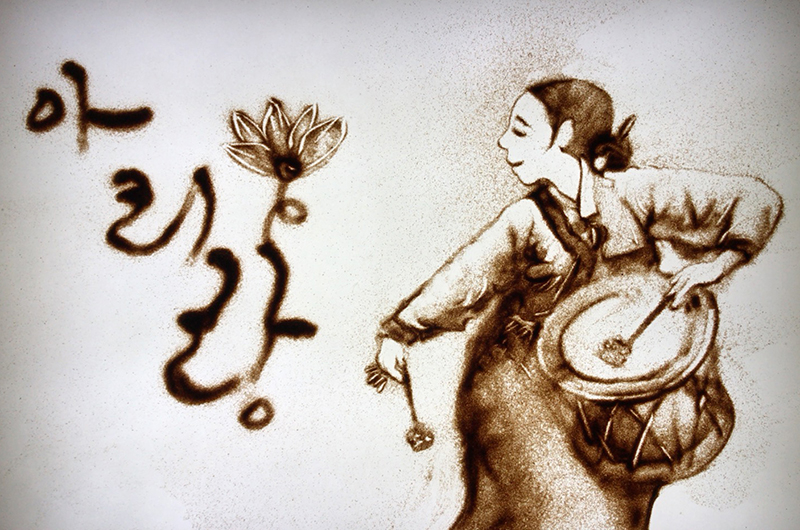 아리랑